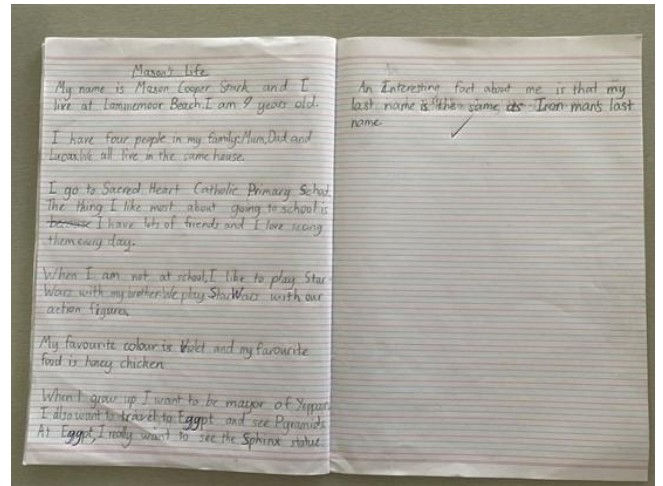 Mason's Life
My name is Mason Cooper Stark and I
live at Lammermoor Beach. I am 9 years old.
I have four people in my family: Mum, Dad and
Lucas. We all live in the same house.
I go to Sacred Heart Catholic Primary School.
The thing I like most about going to school is
because I have lots of friends and I love seeing
them every day.
When I am not at school, I like to play Star
Wars with my brother. We play Star Wars with our
action figures.
My favourite colour is Violet and my favourite
food is honey chicken
When I grow up I want to be mayor of Yeppoon.
I also want to travel to Egypt and see Pyramids.
At Egypt, I really want to see the Sphinx statue.
An Interesting fact about me is that my
last name is the same as Iron-man's last
name.